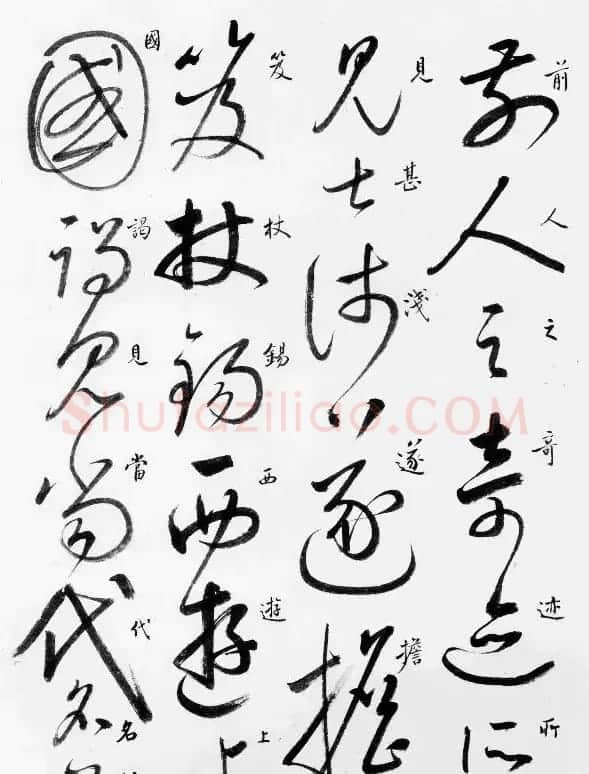 前人之奇迹所
見甚淺遂擔
笈杖錫西遊上
國謁見當代名
Shufaziliao.COM